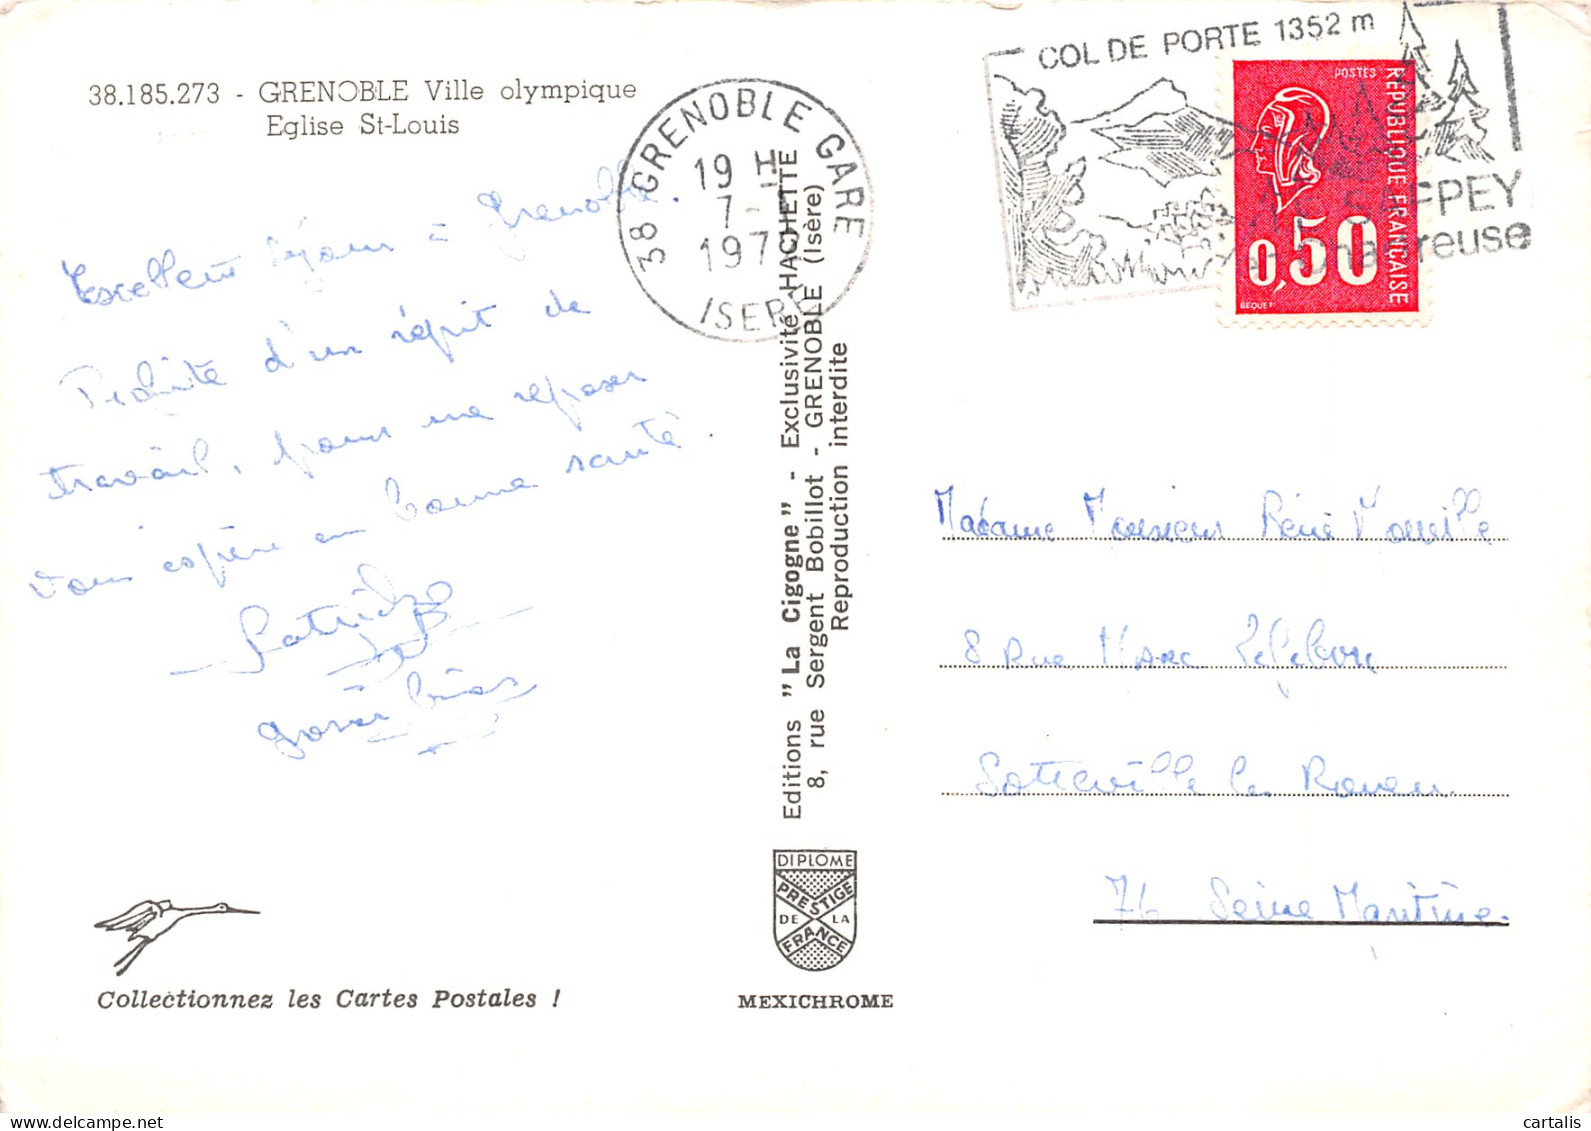 38.185.273 - GRENOBLE Ville olympique
Eglise St-Louis
Excellent séjour à Grenoble.
Profite d'un répit de
travail, pour me reposer
Vous espère en bonne santé.
38 GRENOBLE GARE
19 H
7-
197
ISERE
COL DE PORTE 1352 m
SAPPEY
Chartreuse
POSTES
RÉPUBLIQUE FRANÇAISE
0,50
BEQUET
Editions "La Cigogne" - Exclusivité HACHETTE
8, rue Sergent Bobillot - GRENOBLE (Isère)
Reproduction interdite
Madame Monsieur René
8 Rue Marc
Sotteville les Rouen
76 Seine Maritime.
DIPLOME
PRESTIGE
DE LA
FRANCE
MEXICHROME
Collectionnez les Cartes Postales !
cartalis